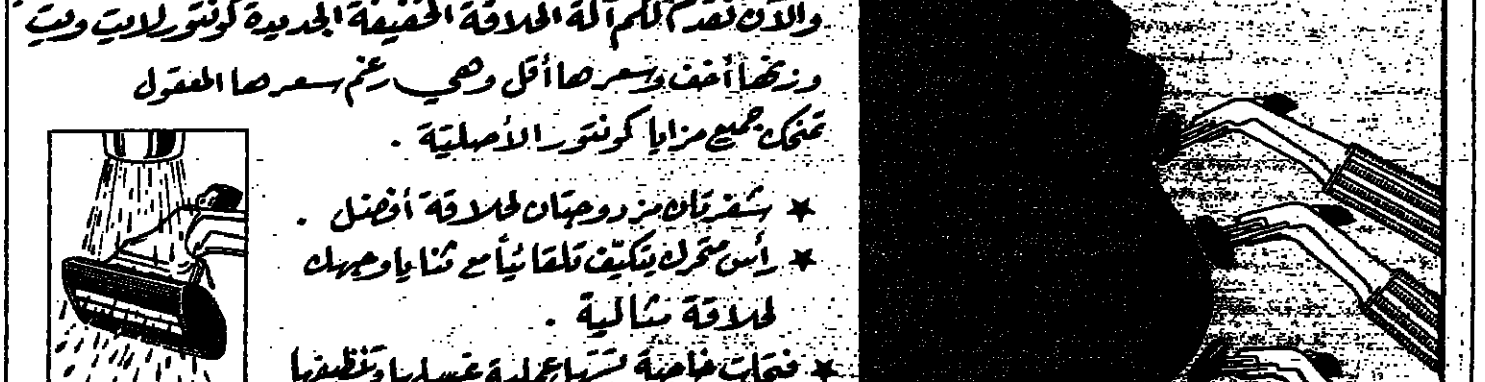 والآن نقدم لكم آلة الحلاقة الخفيفة الجديدة كونتور لايت ويت
وزنها أخف وسعرها أقل وهي رغم سعرها المعقول
تمنحك جميع مزايا كونتور الأصلية .
★ شفرتان مزدوجتان لحلاقة أفضل .
★ رأس متحرك يتكيف تلقائياً مع ثنايا وجهك
لحلاقة مثالية .
★ فتحات خاصة عملية غسلها وتنظيفها